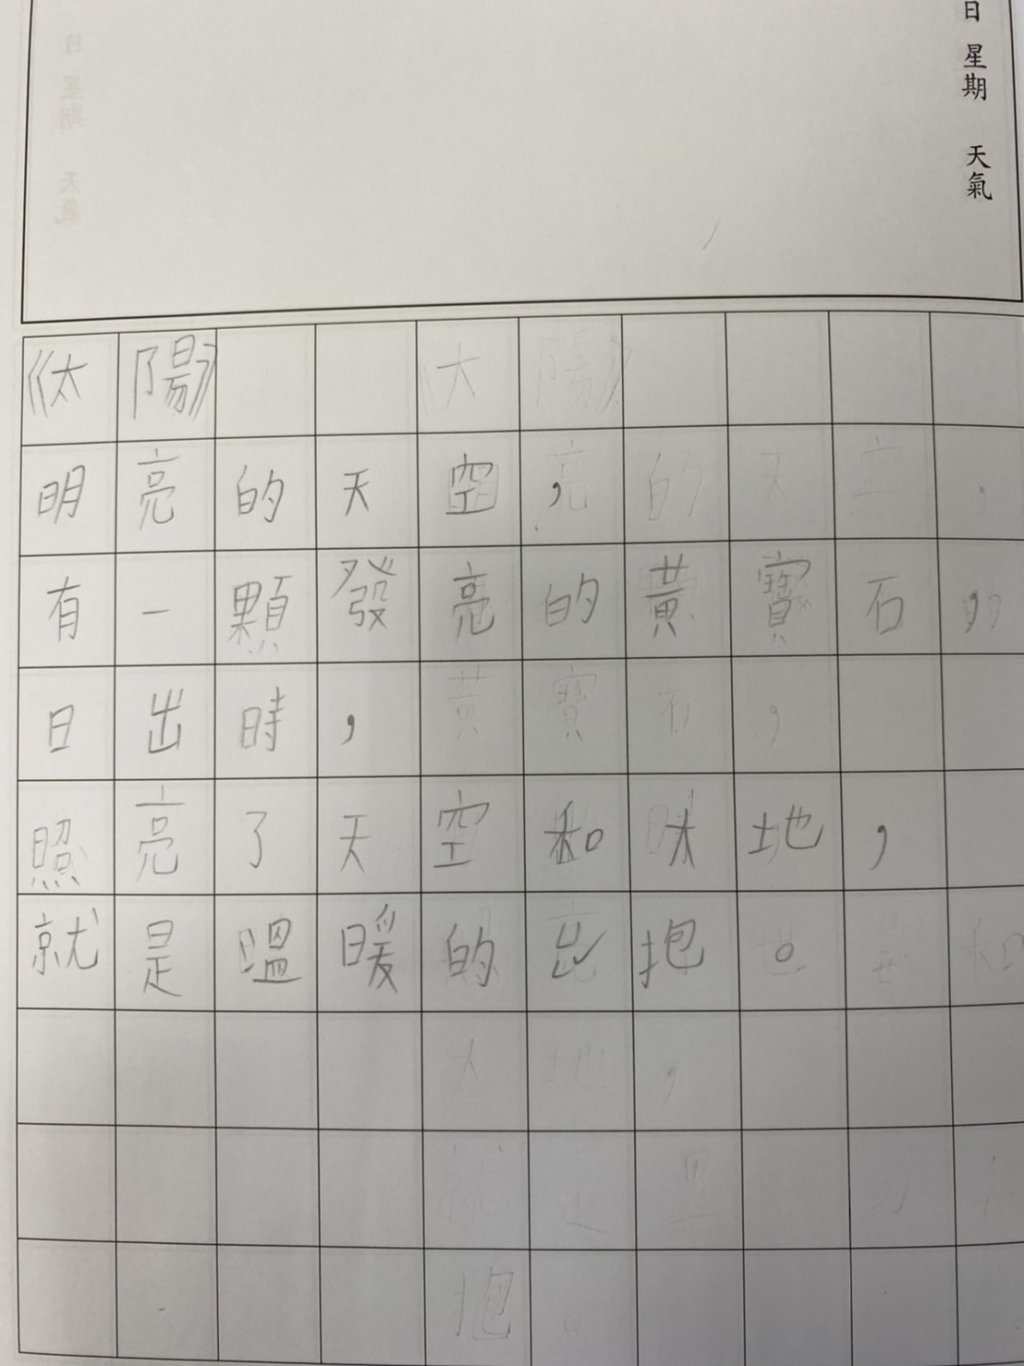 日 星期 天氣
《太陽》
明亮的天空,
有一顆發亮的黃寶石,
日出時,
照亮了天空和大地,
就是溫暖的抱。